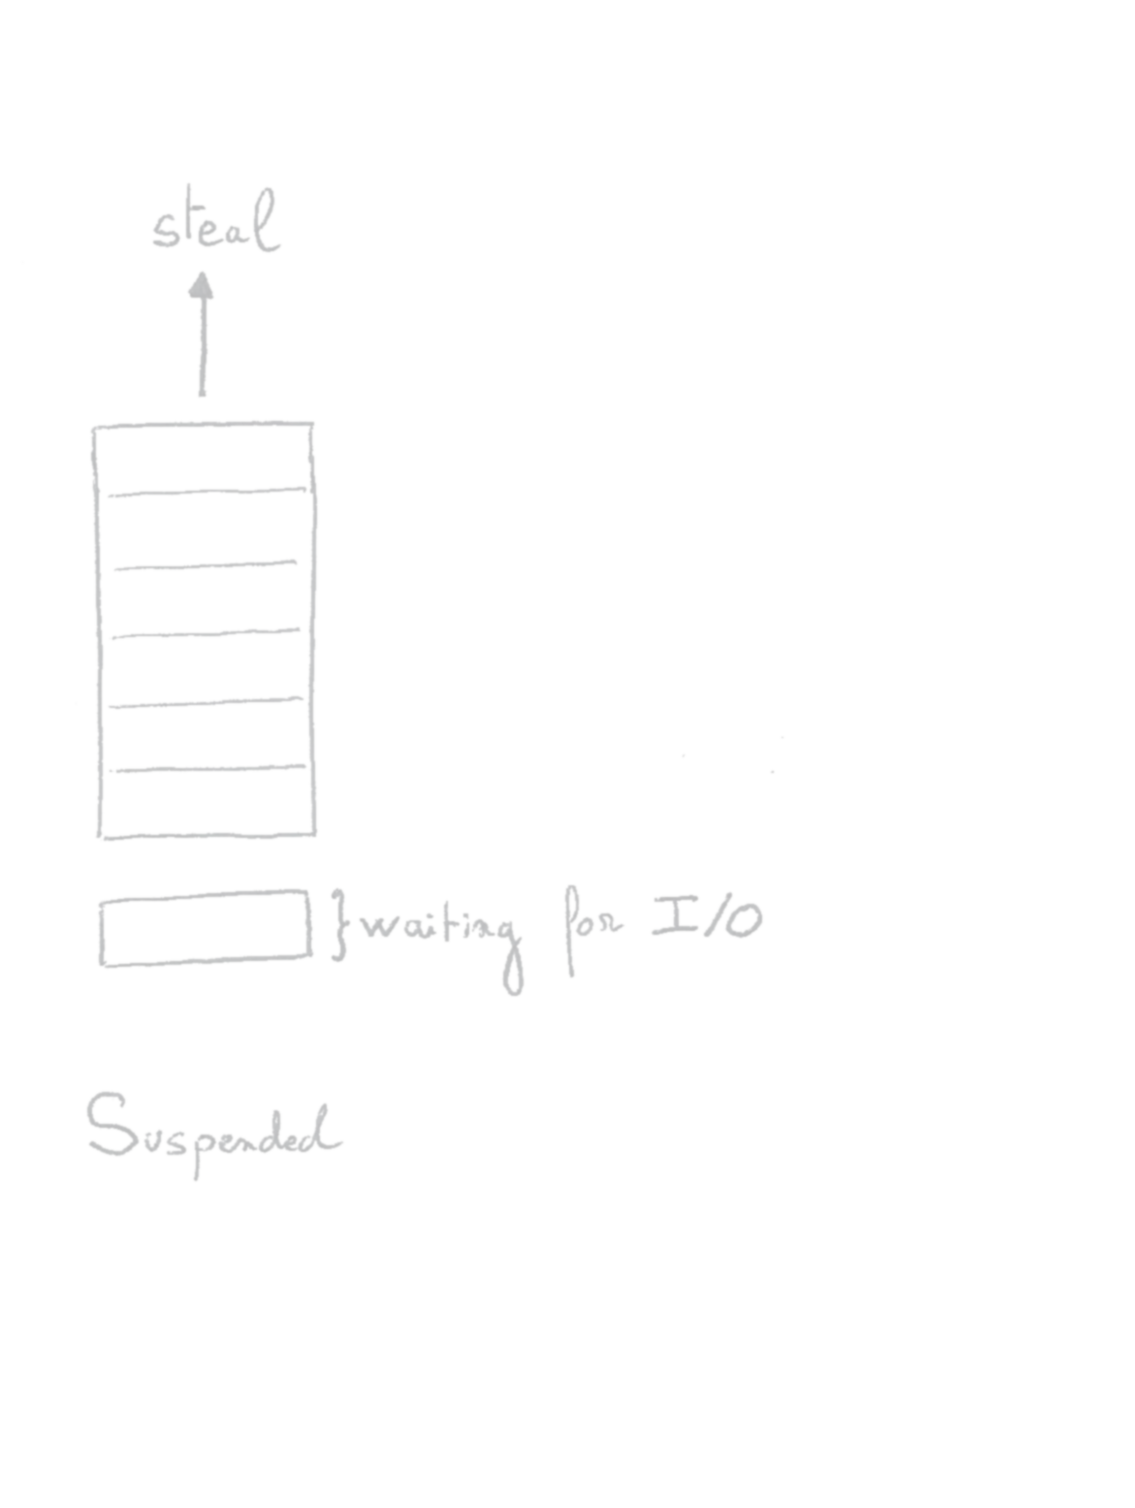 steal
}waiting for I/O
Suspended